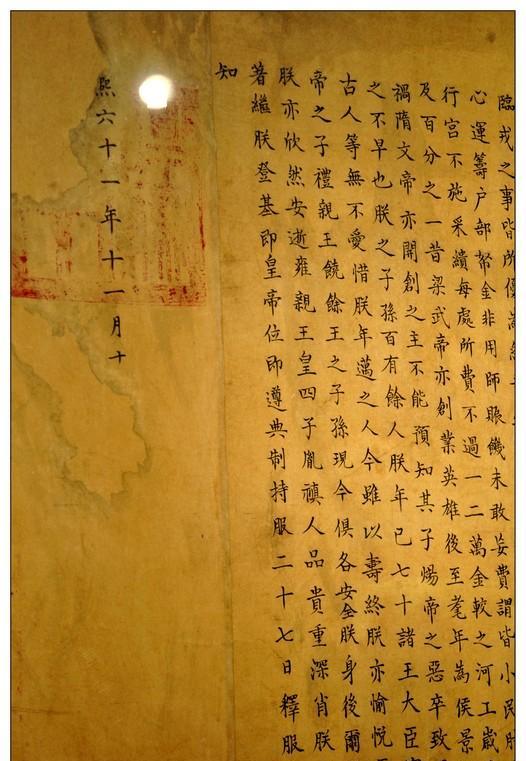 臨戎之事皆所優為
心運籌戶部帑金非用師賑饑未敢妄費謂皆小民
行宮不施采繢每處所費不過一二萬金較之河工歲
及百分之一昔梁武帝亦創業英雄後至耄年為侯景
禍隋文帝亦開創之主不能預知其子煬帝之惡卒致
之不早也朕之子孫百有餘人朕年已七十諸王大臣
古人等無不愛惜朕年邁之人今雖以壽終朕亦愉悅
帝之子禮親王饒餘王之子孫現今俱各安全朕身後爾
朕亦欣然安逝雍親王皇四子胤禛人品貴重深肖朕
著繼朕登基即皇帝位即遵典制持服二十七日釋服
知
熙六十一年十一月十